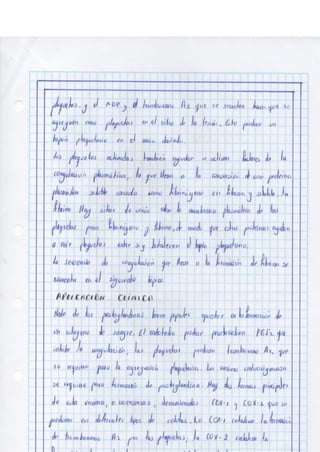 plaquetas. y el ADP y el tromboxano A2 que se secretan hacen que se
agreguen mas plaquetas en el sitio de la lesión. Esto produce un
tapón plaquetario en el vaso dañado.
Las plaquetas activadas tambien ayudan a activar factores de la
coagulación plasmática, lo que lleva a la conversión de una proteína
plasmática soluble conocida como fibrinógeno en fibrina y soluble. La
fibrina Hay sitios de unión sobre la membrana plasmática de las
plaquetas para fibrinógeno y fibrina, de modo que estas proteínas ayudan
a unir plaquetas entre si y fortalecen el tapón plaquetario.
La secuencia de coagulación que lleva a la formación de fibrina se
comenta en el siguiente tópico.
APLICACIÓN CLINICA
Note de las prostaglandinas tienen papeles opuestos en la formación de
un coágulo de sangre. El endotelio produce prostaciclina PGI2, que
inhibe la coagulación; las plaquetas producen tromboxano A2, que
se requiere para la agregación plaquetaria. La enzima ciclooxigenasa
se requiere para formación de prostaglandina. Hay dos formas principales
de esta enzima, o isoenzimas, denominadas COX-1 y COX-2 que se
producen en diferentes tipos de celulas. La COX1 cataliza la formación
de tromboxano A2 por las plaquetas, la COX-2 cataliza la